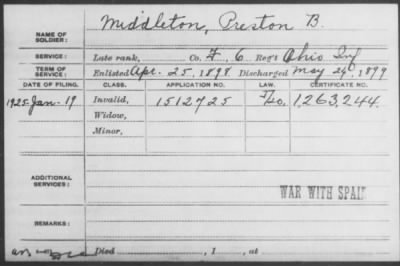 NAME OF SOLDIER: Middleton, Preston B.
SERVICE: Late rank, Co. F, 6 Reg't Ohio Inf
TERM OF SERVICE: Enlisted Apr. 25, 1898 Discharged May 24, 1899
DATE OF FILING. CLASS. APPLICATION NO. LAW. CERTIFICATE NO.
1925-Jan-19 Invalid, 1512725 1,263,244.
Widow,
Minor,
ADDITIONAL SERVICES:
WAR WITH SPAIN
REMARKS:
Died , 1 , at